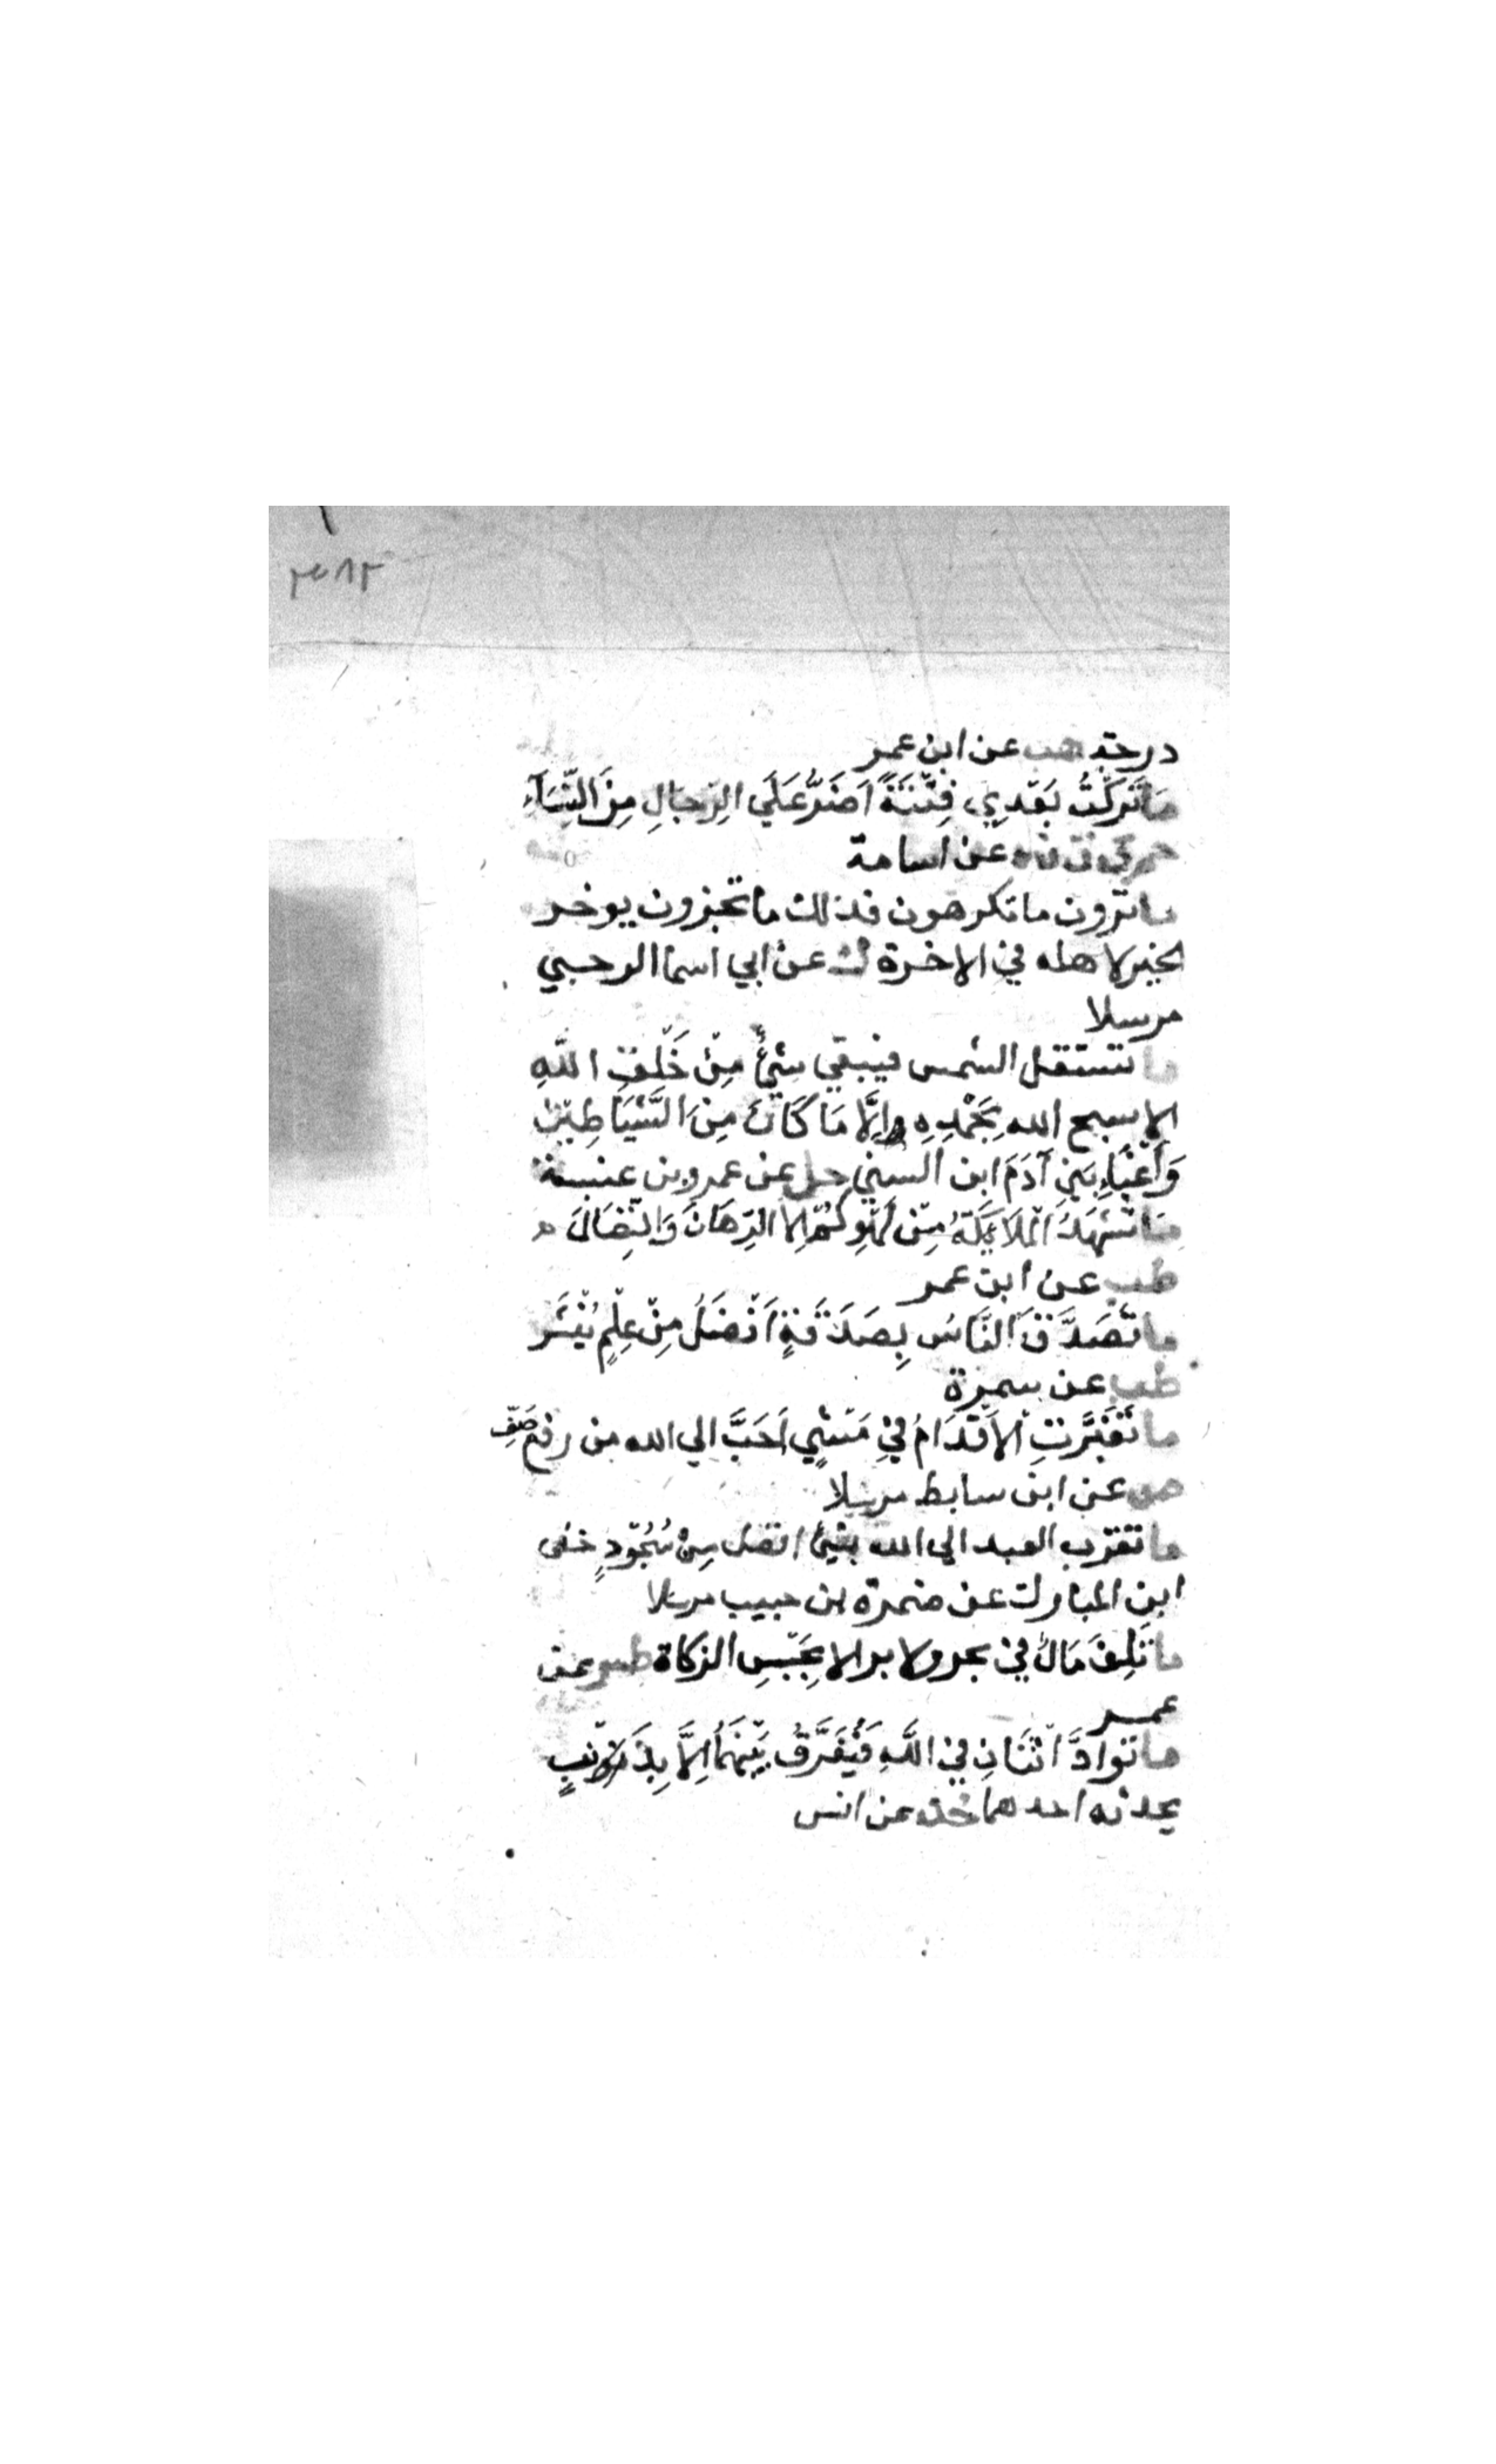 ٣٤٨٢
درجة هب عن ابن عمر
مَا تَرَكْتُ بَعْدِي فِتْنَةً اَضَرَّ عَلَي الرِّجَالِ مِنَ النِّسَآءِ
حم ق ت ن ه عن اسامة
ما ترون ما تكرهون فذلك ما تجزون يوخر
الخير لاهله في الاخرة ك عن ابي اسما الرحبي
مرسلا
ما تستقل الشمس فيبقي شَيْءٌ مِنْ خَلْقِ اللَّهِ
الا سبح الله بِحَمْدِهِ اِلَّا مَا كَانَ مِنَ الشَّيَاطِيْنِ
وَاَغْبَاءِ بَنِي آدَمَ ابن السني حل عن عمرو بن عنبسة
مَا تَشْهَدُ الْمَلَائِكَةُ مِنْ لَهْوِكُمْ اِلا الرِّهَانَ وَالنِّضَالَ
طب عن ابن عمر
ما تَصَدَّقَ النَّاسُ بِصَدَقَةٍ اَفْضَلُ مِنْ عِلْمٍ يُنْشَر
طب عن سمرة
ما تَغَبَّرَتِ الْاَقْدَامُ فِي مَشْيٍ اَحَبَّ الي الله من رقع صَفٍّ
ص عن ابن سابط مرسلا
ما تقرب العبد الي الله بشيء افضل مِنْ سُجُوْدٍ خفى
ابن المبارك عن ضمرة بن حبيب مرسلا
ما تَلِفَ مَالٌ في بحر ولا بر الا بِحَبْسِ الزكاة طس عن
عمر
ما تَوَادَّ اثْنَانِ فِي اللَّهِ فَيُفَرَّقُ بَيْنَهُمَا اِلَّا بِذَنْبٍ
يحدثه احدهما خد عن انس